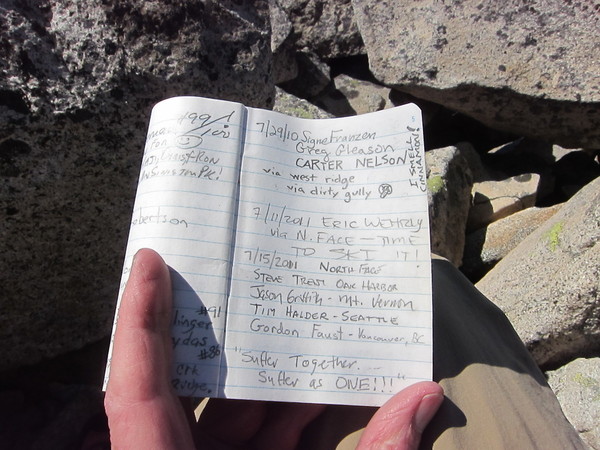 #99/
100
For
obertson
#91
linger
ydas
#86
7/29/10 Signe Franzen
Greg Gleason
CARTER NELSON
via west ridge
via dirty gully
I SMELL
CINNAMON!
7/11/2011 ERIC WEHRLY
via N. FACE — TIME
TO SKI IT!
7/15/2011 NORTH FACE
STEVE TREAT OAK HARBOR
Jason Griffith - Mt. Vernon
TIM HALDER - SEATTLE
Gordon Faust - Vancouver, BC
"Suffer Together...
Suffer as ONE!!!"